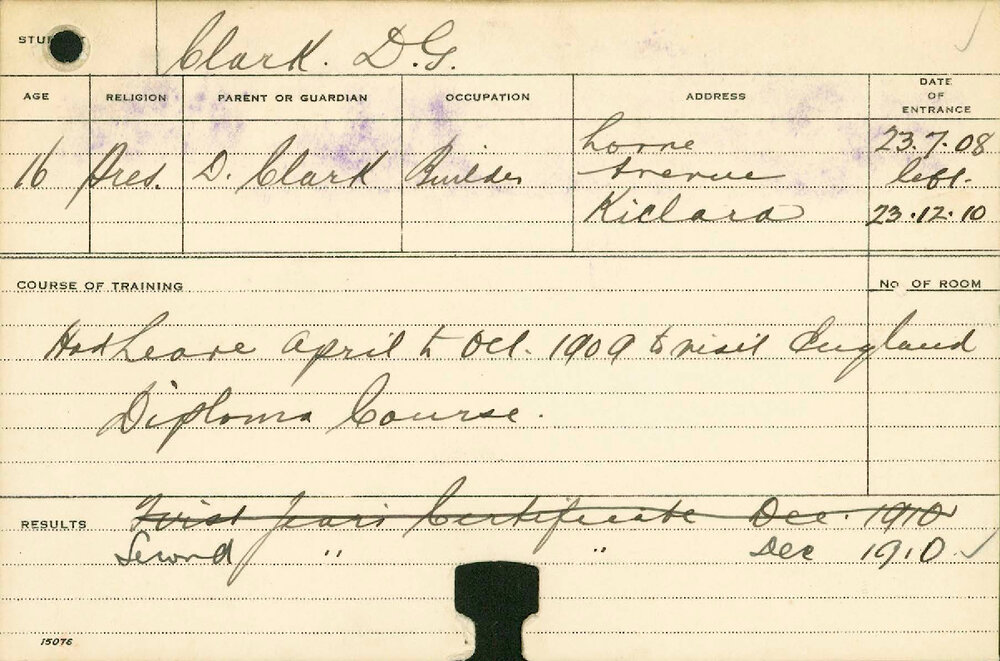 STUDENT Clark. D.G.
AGE RELIGION PARENT OR GUARDIAN OCCUPATION ADDRESS DATE OF ENTRANCE
16 Pres. D. Clark Builder Lorne Avenue Killara 23.7.08 left. 23.12.10
COURSE OF TRAINING No OF ROOM
Had Leave April to Oct. 1909 to visit England
Diploma Course.
RESULTS First Years Certificate Dec. 1910
Second " " Dec 1910
15076